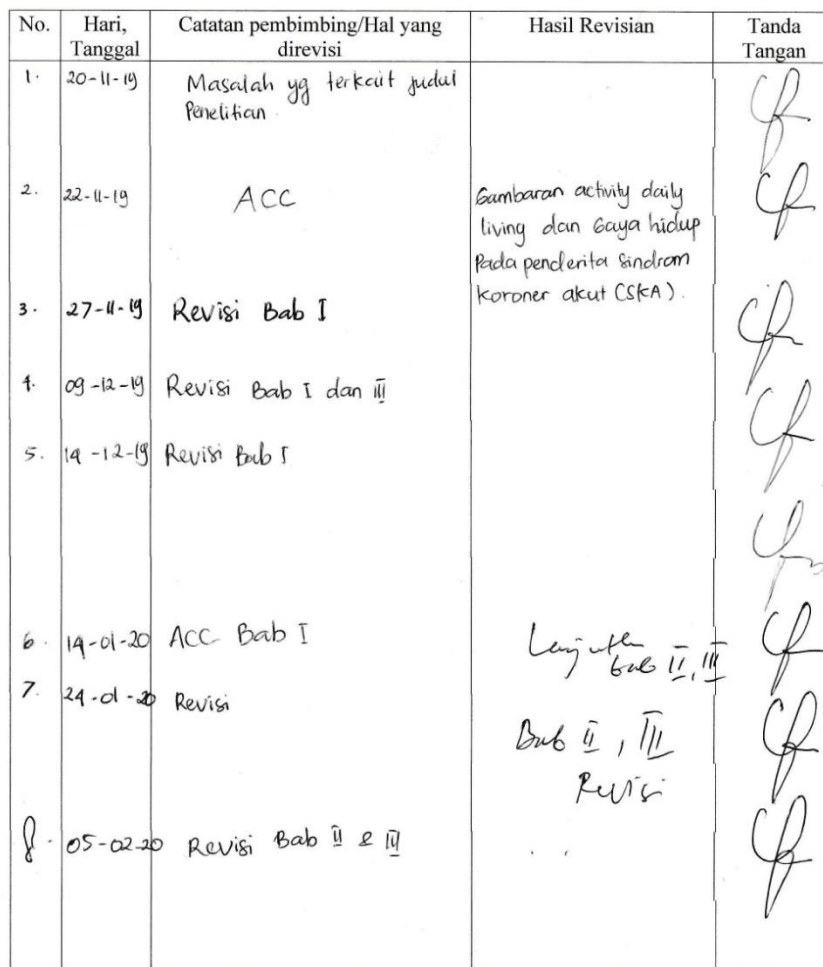 No. Hari, Tanggal Catatan pembimbing/Hal yang direvisi Hasil Revisian Tanda Tangan
1. 20-11-19 Masalah yg terkait judul
Penelitian
2. 22-11-19 ACC Gambaran activity daily
living dan Gaya hidup
Pada penderita sindrom
koroner akut (SKA).
3. 27-11-19 Revisi Bab I
4. 09-12-19 Revisi Bab I dan III
5. 14-12-19 Revisi Bab I
6. 14-01-20 ACC Bab I Lanjutkan
bab II, III
7. 24-01-20 Revisi
Bab II, III
Revisi
8. 05-02-20 Revisi Bab II & III